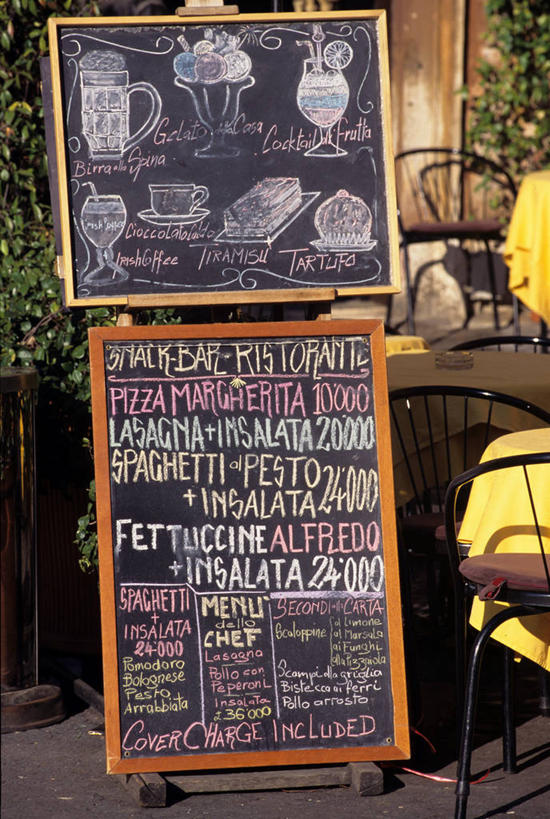 Gelato della Casa
Cocktail di Frutta
Birra alla Spina
Irish Coffee
Cioccolato Caldo
Irish Coffee
TIRAMISU
TARTUFO
SNACK-BAR-RISTORANTE
PIZZA MARGHERITA 10'000
LASAGNA+INSALATA 20'000
SPAGHETTI al PESTO
+ INSALATA 24'000
FETTUCCINE ALFREDO
+ INSALATA 24'000
SPAGHETTI
+
INSALATA
24-000
Pomodoro
Bolognese
Pesto
Arrabbiata
MENU'
dello
CHEF
Lasagna
Pollo con
Peperoni
Insalata
£ 36'000
SECONDI alla CARTA
Scaloppine al Limone
al Marsala
ai Funghi
alla Pizzaiola
Scampi alla griglia
Bistecca ai ferri
Pollo arrosto
COVER CHARGE INCLUDED